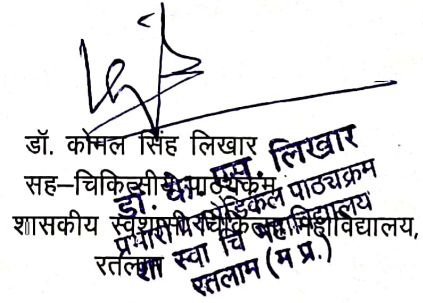 डॉ. कोमल सिंह लिखार
सह–चिकित्सीय पाठ्यक्रम
शासकीय स्वशासी चिकित्सा महाविद्यालय,
रतलाम
डॉ. के. एस. लिखार
प्रभारी पैरामेडिकल पाठ्यक्रम
शा स्वा चि महाविद्यालय
रतलाम (म प्र.)